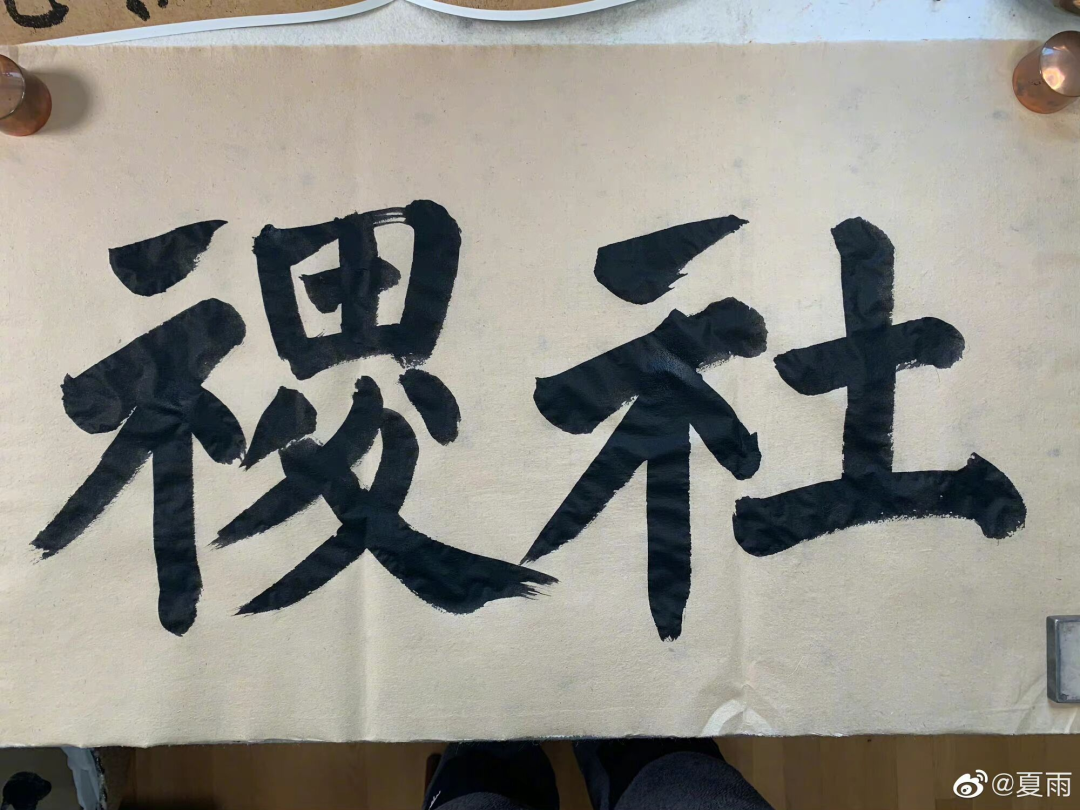 社稷
@夏雨